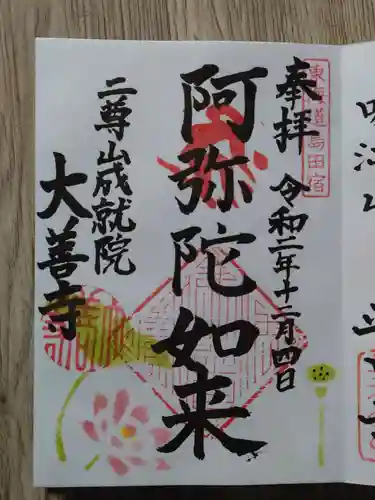 東海道島田宿
奉拝
令和二年十二月四日
阿弥陀如来
二尊山成就院
大善寺